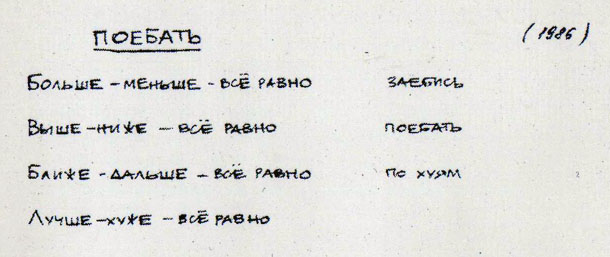 ПОЕБАТЬ (1986)
Больше – меньше – всё равно заебись
Выше – ниже – всё равно поебать
Ближе – дальше – всё равно по хуям
Лучше – хуже – всё равно